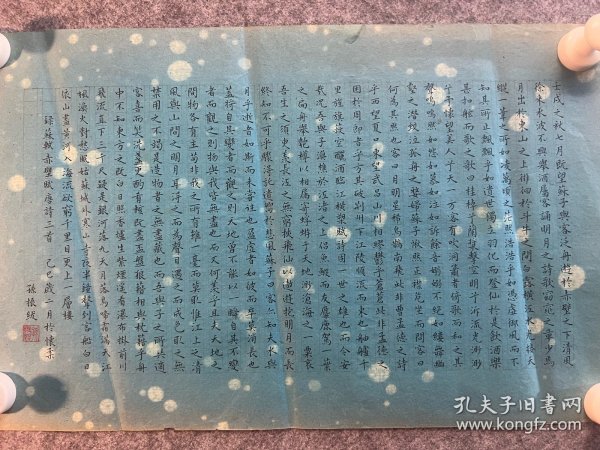 壬戌之秋七月既望蘇子與客泛舟遊於赤壁之下清風
徐來水波不興舉酒屬客誦明月之詩歌窈窕之章少焉
月出於東山之上徘徊於斗牛之間白露橫江水光接天
縱一葦之所如凌萬頃之茫然浩浩乎如馮虛御風而不
知其所止飄飄乎如遺世獨立羽化而登仙於是飲酒樂
甚扣舷而歌之歌曰桂棹兮蘭槳擊空明兮泝流光渺渺
兮予懷望美人兮天一方客有吹洞簫者倚歌而和之其
聲嗚嗚然如怨如慕如泣如訴餘音嫋嫋不絕如縷舞幽
壑之潛蛟泣孤舟之嫠婦蘇子愀然正襟危坐而問客曰
何為其然也客曰月明星稀烏鵲南飛此非曹孟德之詩
乎西望夏口東望武昌山川相繆鬱乎蒼蒼此非孟德之
困於周郎者乎方其破荊州下江陵順流而東也舳艫千
里旌旗蔽空釃酒臨江橫槊賦詩固一世之雄也而今安
在哉況吾與子漁樵於江渚之上侶魚鰕而友麋鹿駕一葉
之扁舟舉匏樽以相屬寄蜉蝣於天地渺滄海之一粟哀
吾生之須臾羨長江之無窮挾飛仙以遨遊抱明月而長
終知不可乎驟得託遺響於悲風蘇子曰客亦知夫水與
月乎逝者如斯而未嘗往也盈虛者如彼而卒莫消長也
蓋將自其變者而觀之則天地曾不能以一瞬自其不變
者而觀之則物與我皆無盡也而又何羨乎且夫天地之
間物各有主苟非吾之所有雖一毫而莫取惟江上之清
風與山間之明月耳得之而為聲目遇之而成色取之無
禁用之不竭是造物者之無盡藏也而吾與子之所共適
客喜而笑洗盞更酌肴核既盡杯盤狼籍相與枕藉乎舟
中不知東方之既白日照香爐生紫煙遙看瀑布掛前川
飛流直下三千尺疑是銀河落九天月落烏啼霜滿天江
楓漁火對愁眠姑蘇城外寒山寺夜半鐘聲到客船白日
依山盡黃河入海流欲窮千里目更上一層樓
錄蘇賦赤壁賦唐詩三首 己巳歲二月於懷柔
孫振
孔夫子旧书网
www.kongfz.com